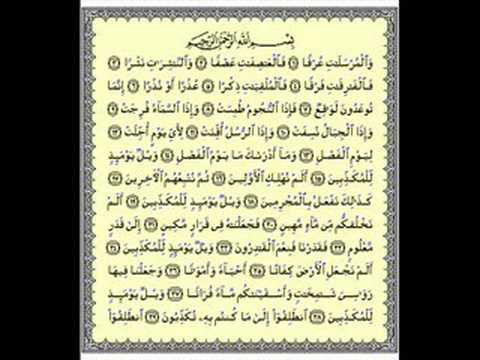 بِسْمِ ٱللَّهِ ٱلرَّحْمَٰنِ ٱلرَّحِيمِ
وَٱلْمُرْسَلَٰتِ عُرْفًا ١ فَٱلْعَٰصِفَٰتِ عَصْفًا ٢ وَٱلنَّٰشِرَٰتِ نَشْرًا ٣
فَٱلْفَٰرِقَٰتِ فَرْقًا ٤ فَٱلْمُلْقِيَٰتِ ذِكْرًا ٥ عُذْرًا أَوْ نُذْرًا ٦ إِنَّمَا
تُوعَدُونَ لَوَٰقِعٌ ٧ فَإِذَا ٱلنُّجُومُ طُمِسَتْ ٨ وَإِذَا ٱلسَّمَآءُ فُرِجَتْ ٩
وَإِذَا ٱلْجِبَالُ نُسِفَتْ ١٠ وَإِذَا ٱلرُّسُلُ أُقِّتَتْ ١١ لِأَىِّ يَوْمٍ أُجِّلَتْ ١٢
لِيَوْمِ ٱلْفَصْلِ ١٣ وَمَآ أَدْرَىٰكَ مَا يَوْمُ ٱلْفَصْلِ ١٤ وَيْلٌ يَوْمَئِذٍ
لِّلْمُكَذِّبِينَ ١٥ أَلَمْ نُهْلِكِ ٱلْأَوَّلِينَ ١٦ ثُمَّ نُتْبِعُهُمُ ٱلْءَاخِرِينَ ١٧
كَذَٰلِكَ نَفْعَلُ بِٱلْمُجْرِمِينَ ١٨ وَيْلٌ يَوْمَئِذٍ لِّلْمُكَذِّبِينَ ١٩ أَلَمْ
نَخْلُقكُّم مِّن مَّآءٍ مَّهِينٍ ٢٠ فَجَعَلْنَٰهُ فِى قَرَارٍ مَّكِينٍ ٢١ إِلَىٰ قَدَرٍ
مَّعْلُومٍ ٢٢ فَقَدَرْنَا فَنِعْمَ ٱلْقَٰدِرُونَ ٢٣ وَيْلٌ يَوْمَئِذٍ لِّلْمُكَذِّبِينَ ٢٤
أَلَمْ نَجْعَلِ ٱلْأَرْضَ كِفَاتًا ٢٥ أَحْيَآءً وَأَمْوَٰتًا ٢٦ وَجَعَلْنَا فِيهَا
رَوَٰسِىَ شَٰمِخَٰتٍ وَأَسْقَيْنَٰكُم مَّآءً فُرَاتًا ٢٧ وَيْلٌ يَوْمَئِذٍ
لِّلْمُكَذِّبِينَ ٢٨ ٱنطَلِقُوٓا۟ إِلَىٰ مَا كُنتُم بِهِۦ تُكَذِّبُونَ ٢٩ ٱنطَلِقُوٓا۟